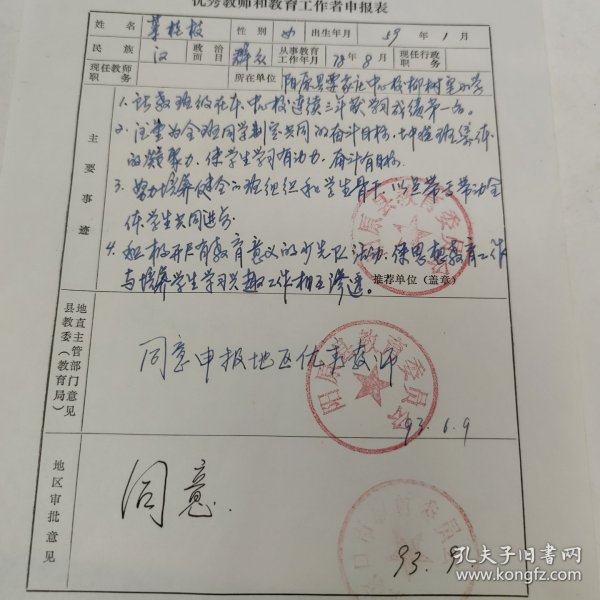 优秀教师和教育工作者申报表
姓 名 性 别 女 出生年月 59 年 1 月
民 族 汉 政治面目 群众 从事教育工作年月 78年8月 现任行政职务
现任教师职务 所在单位 阳原县要家庄中心校柳树皂小学
主要事迹
1. 班级在本中心校连续三年 成绩第一名。
2. 注重为全班同学制定共同的奋斗目标, 增强班集体
的凝聚力, 使学生学习有动力, 奋斗有目标。
3. 努力培养健全的班组织和学生骨干, 以点带面带动全
体学生共同进步。
4. 积极开展有教育意义的少先队活动, 使思想教育工作
与培养学生学习兴趣工作相互渗透。
推荐单位(盖章)
阳原县教育委员会
地直主管部门意见
县教委(教育局)
同意申报地区优秀教师
阳原县教育委员会
93.6.9
地区审批意见
同意.
93.9.
孔夫子旧书网
www.kongfz.com